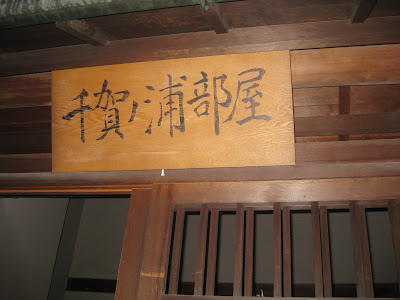 千賀ノ浦部屋